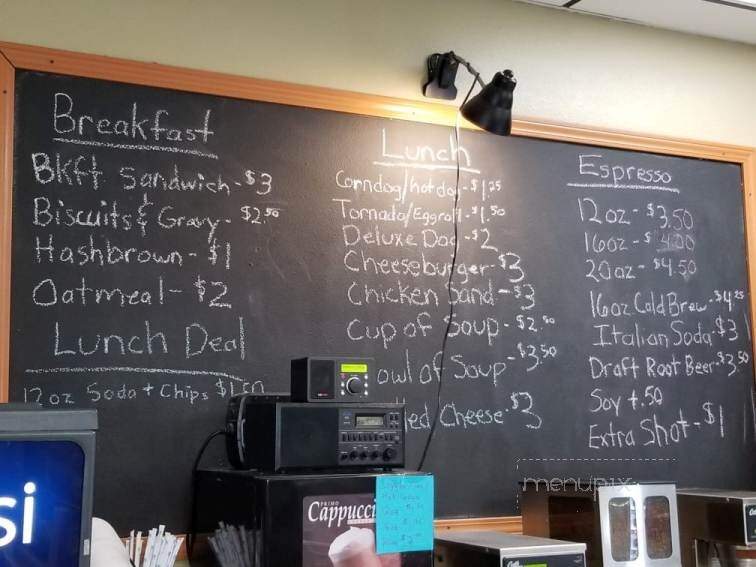 Breakfast
BKft. Sandwich - $3
Biscuits & Gravy - $2.50
Hashbrown - $1
Oatmeal - $2
Lunch Deal
12 oz Soda + Chips $1.50
Lunch
Corndog/hotdog - $1.25
Tornado/Eggroll - $1.50
Deluxe Dog - $2
Cheeseburger - $3
Chicken Sand - $3
Cup of Soup - $2.50
owl of Soup - $3.50
led Cheese - $3
Espresso
12oz - $3.50
16oz - $4.00
20oz - $4.50
16oz Cold Brew - $4.25
Italian Soda - $3
Draft Root Beer - $3.50
Soy +.50
Extra Shot - $1
si
PRIMO
Cappucci
menupix